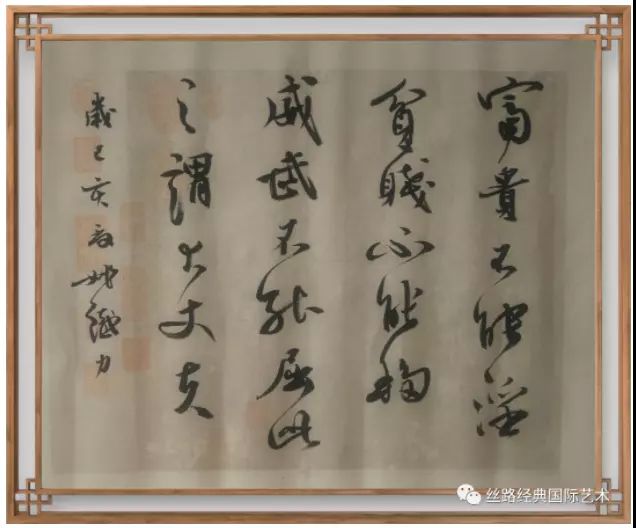 富貴不能淫
貧賤不能移
威武不能屈此
之謂大丈夫
歲己亥
丝路经典国际艺术